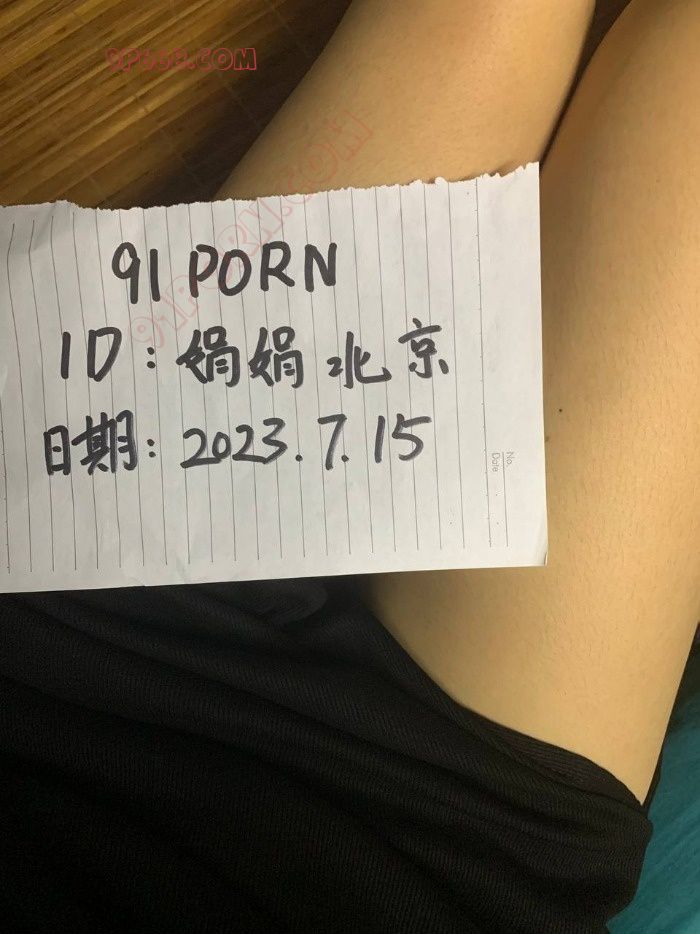 91PORN.COM
91 PORN
ID: 娟娟北京
日期: 2023.7.15
No.
Date